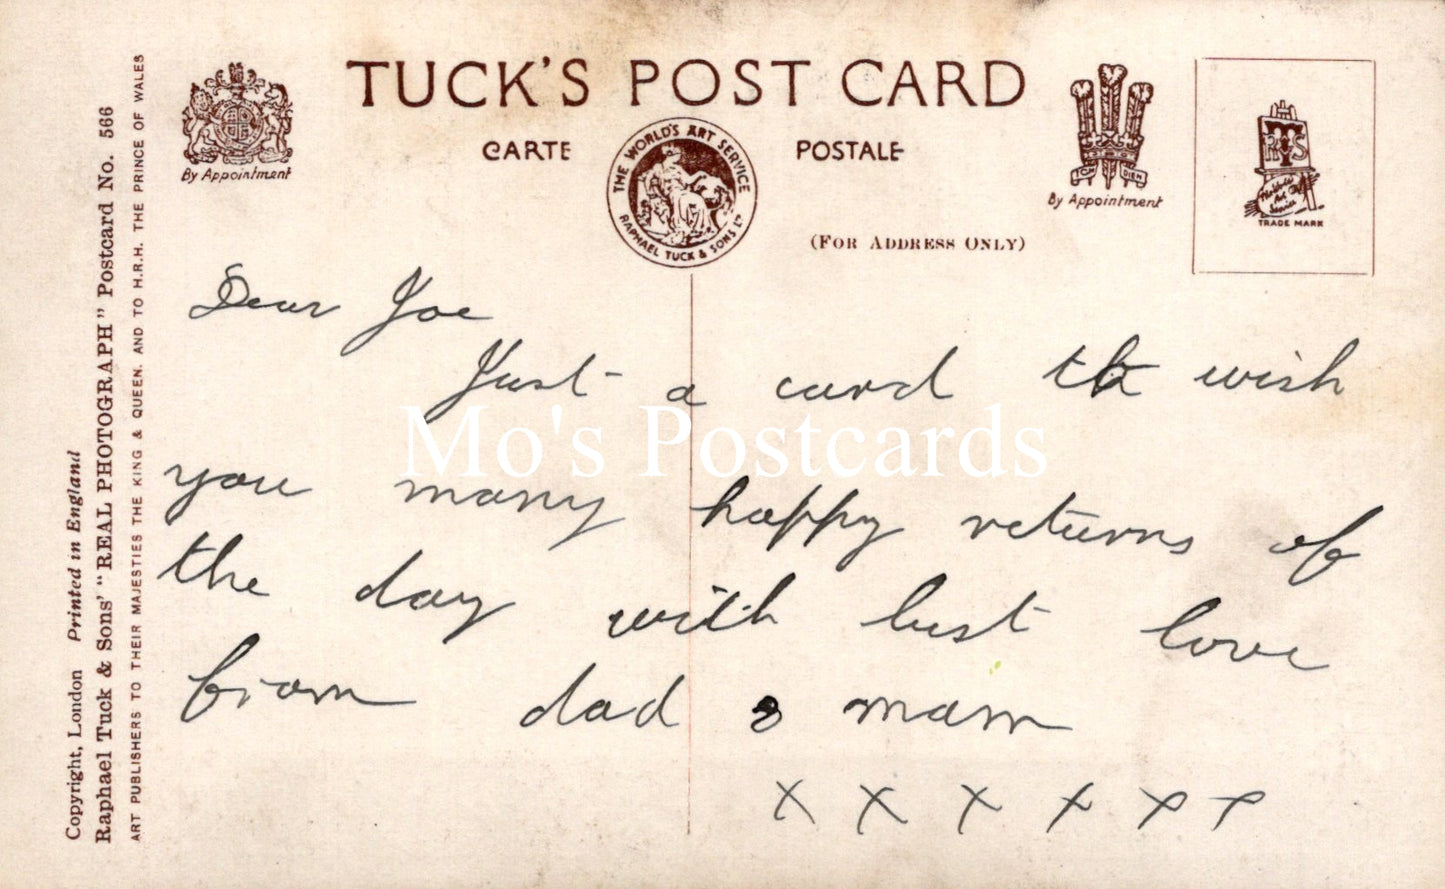 TUCK'S POST CARD
CARTE POSTALE
By Appointment
THE WORLD'S ART SERVICE
RAPHAEL TUCK & SONS LTD
ICH DIEN
By Appointment
RTS
TRADE MARK
(FOR ADDRESS ONLY)
Copyright, London Printed in England
Raphael Tuck & Sons' "REAL PHOTOGRAPH" Postcard No. 566
ART PUBLISHERS TO THEIR MAJESTIES THE KING & QUEEN, AND TO H.R.H. THE PRINCE OF WALES
Dear Joe
Just a card to wish
you many happy returns of
the day with best love
from dad & mam
x x x x x x
Mo's Postcards